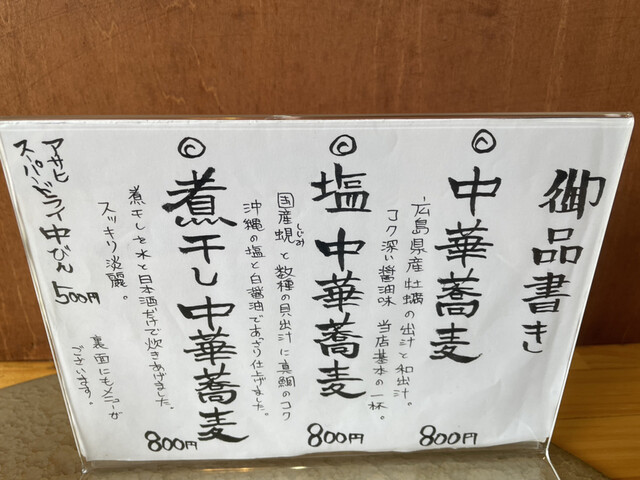 御品書き
◎中華蕎麦
広島県産牡蠣の出汁と和出汁。
コク深い醤油味 当店基本の一杯。
800円
◎塩中華蕎麦
国産蜆と数種の貝出汁に真鯛のコク
しじみ
沖縄の塩と白醤油であっさり仕上げました。
800円
◎煮干し中華蕎麦
煮干しを水と日本酒だけで炊きあげました。
スッキリ淡麗。
800円
アサヒ
スーパードライ中びん 500円
裏面にもメニューが
ございます。